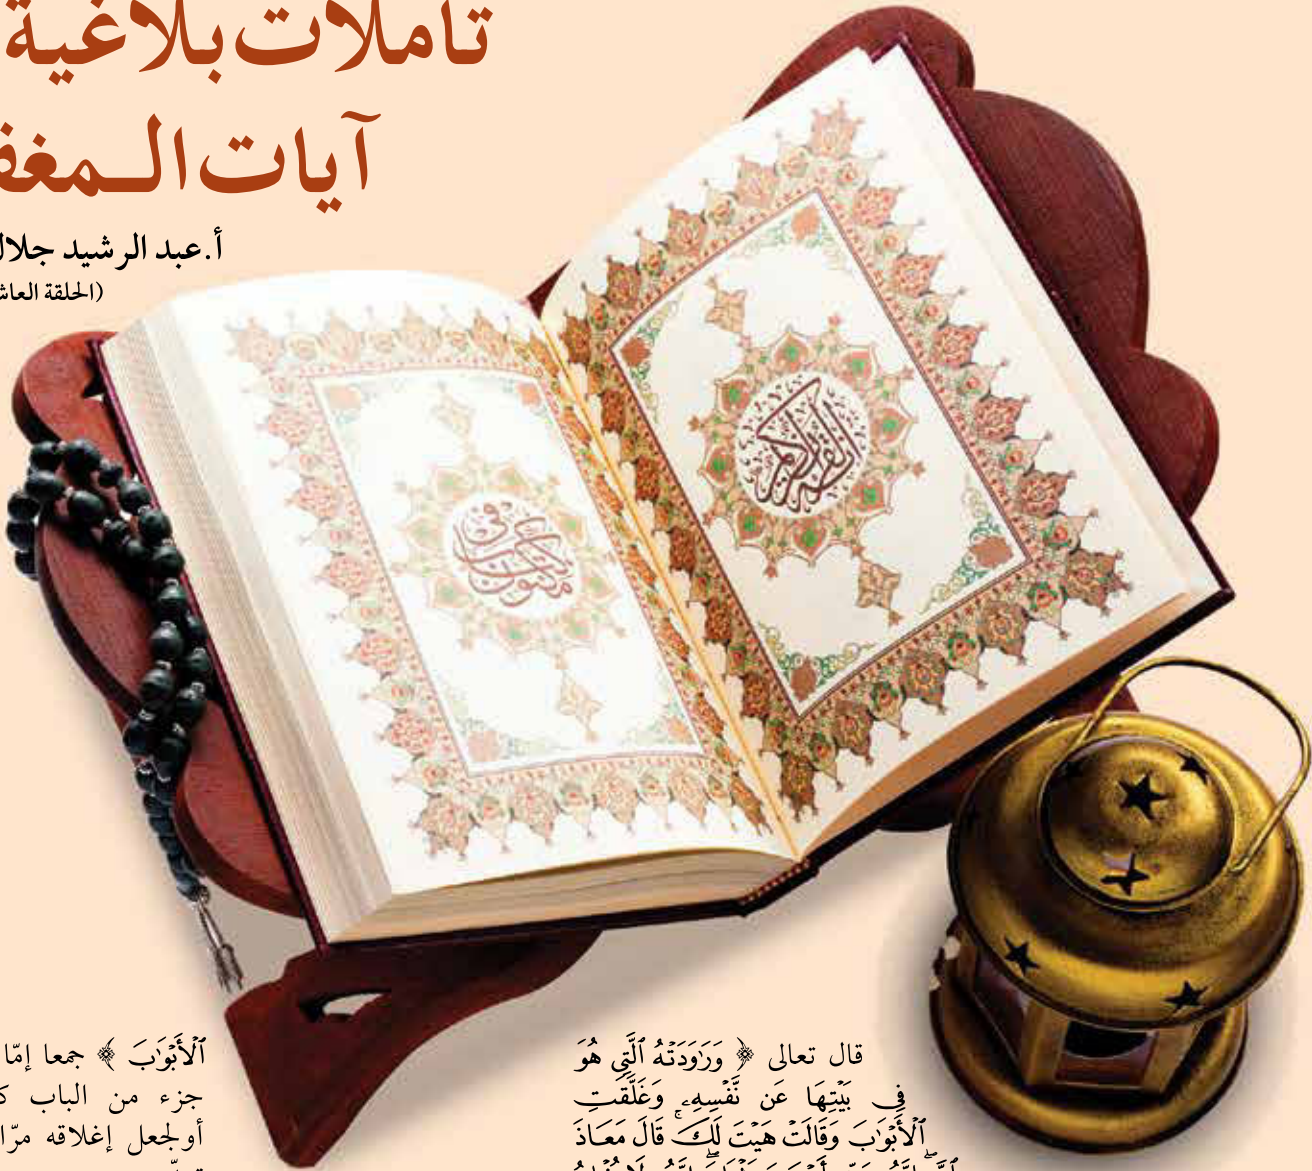 تاملات بلاغية
آيات الـمغف
أ.عبد الرشيد جلال
(الحلقة العاش
إنه لقرآن كريم
في كتاب مكنون
قال تعالى ﴿ وَرَٰوَدَتْهُ ٱلَّتِى هُوَ
فِى بَيْتِهَا عَن نَّفْسِهِۦ وَغَلَّقَتِ
ٱلْأَبْوَٰبَ وَقَالَتْ هَيْتَ لَكَ ۚ قَالَ مَعَاذَ
ٱلْأَبْوَٰبَ ﴾ جمعا إمّا
جزء من الباب ك
أولجعل إغلاقه مرّا